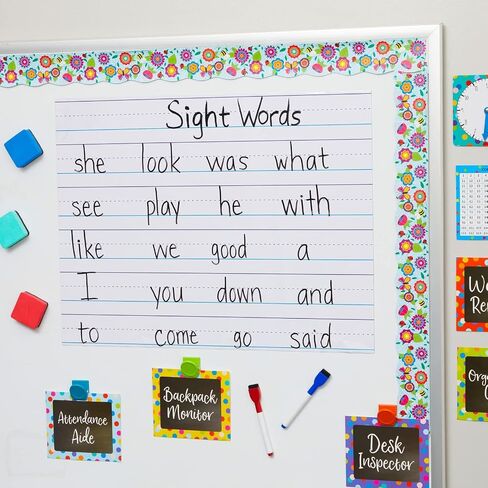 Sight Words
she look was what
see play he with
like we good a
I you down and
to come go said
Attendance
Aide
Backpack
Monitor
Desk
Inspector